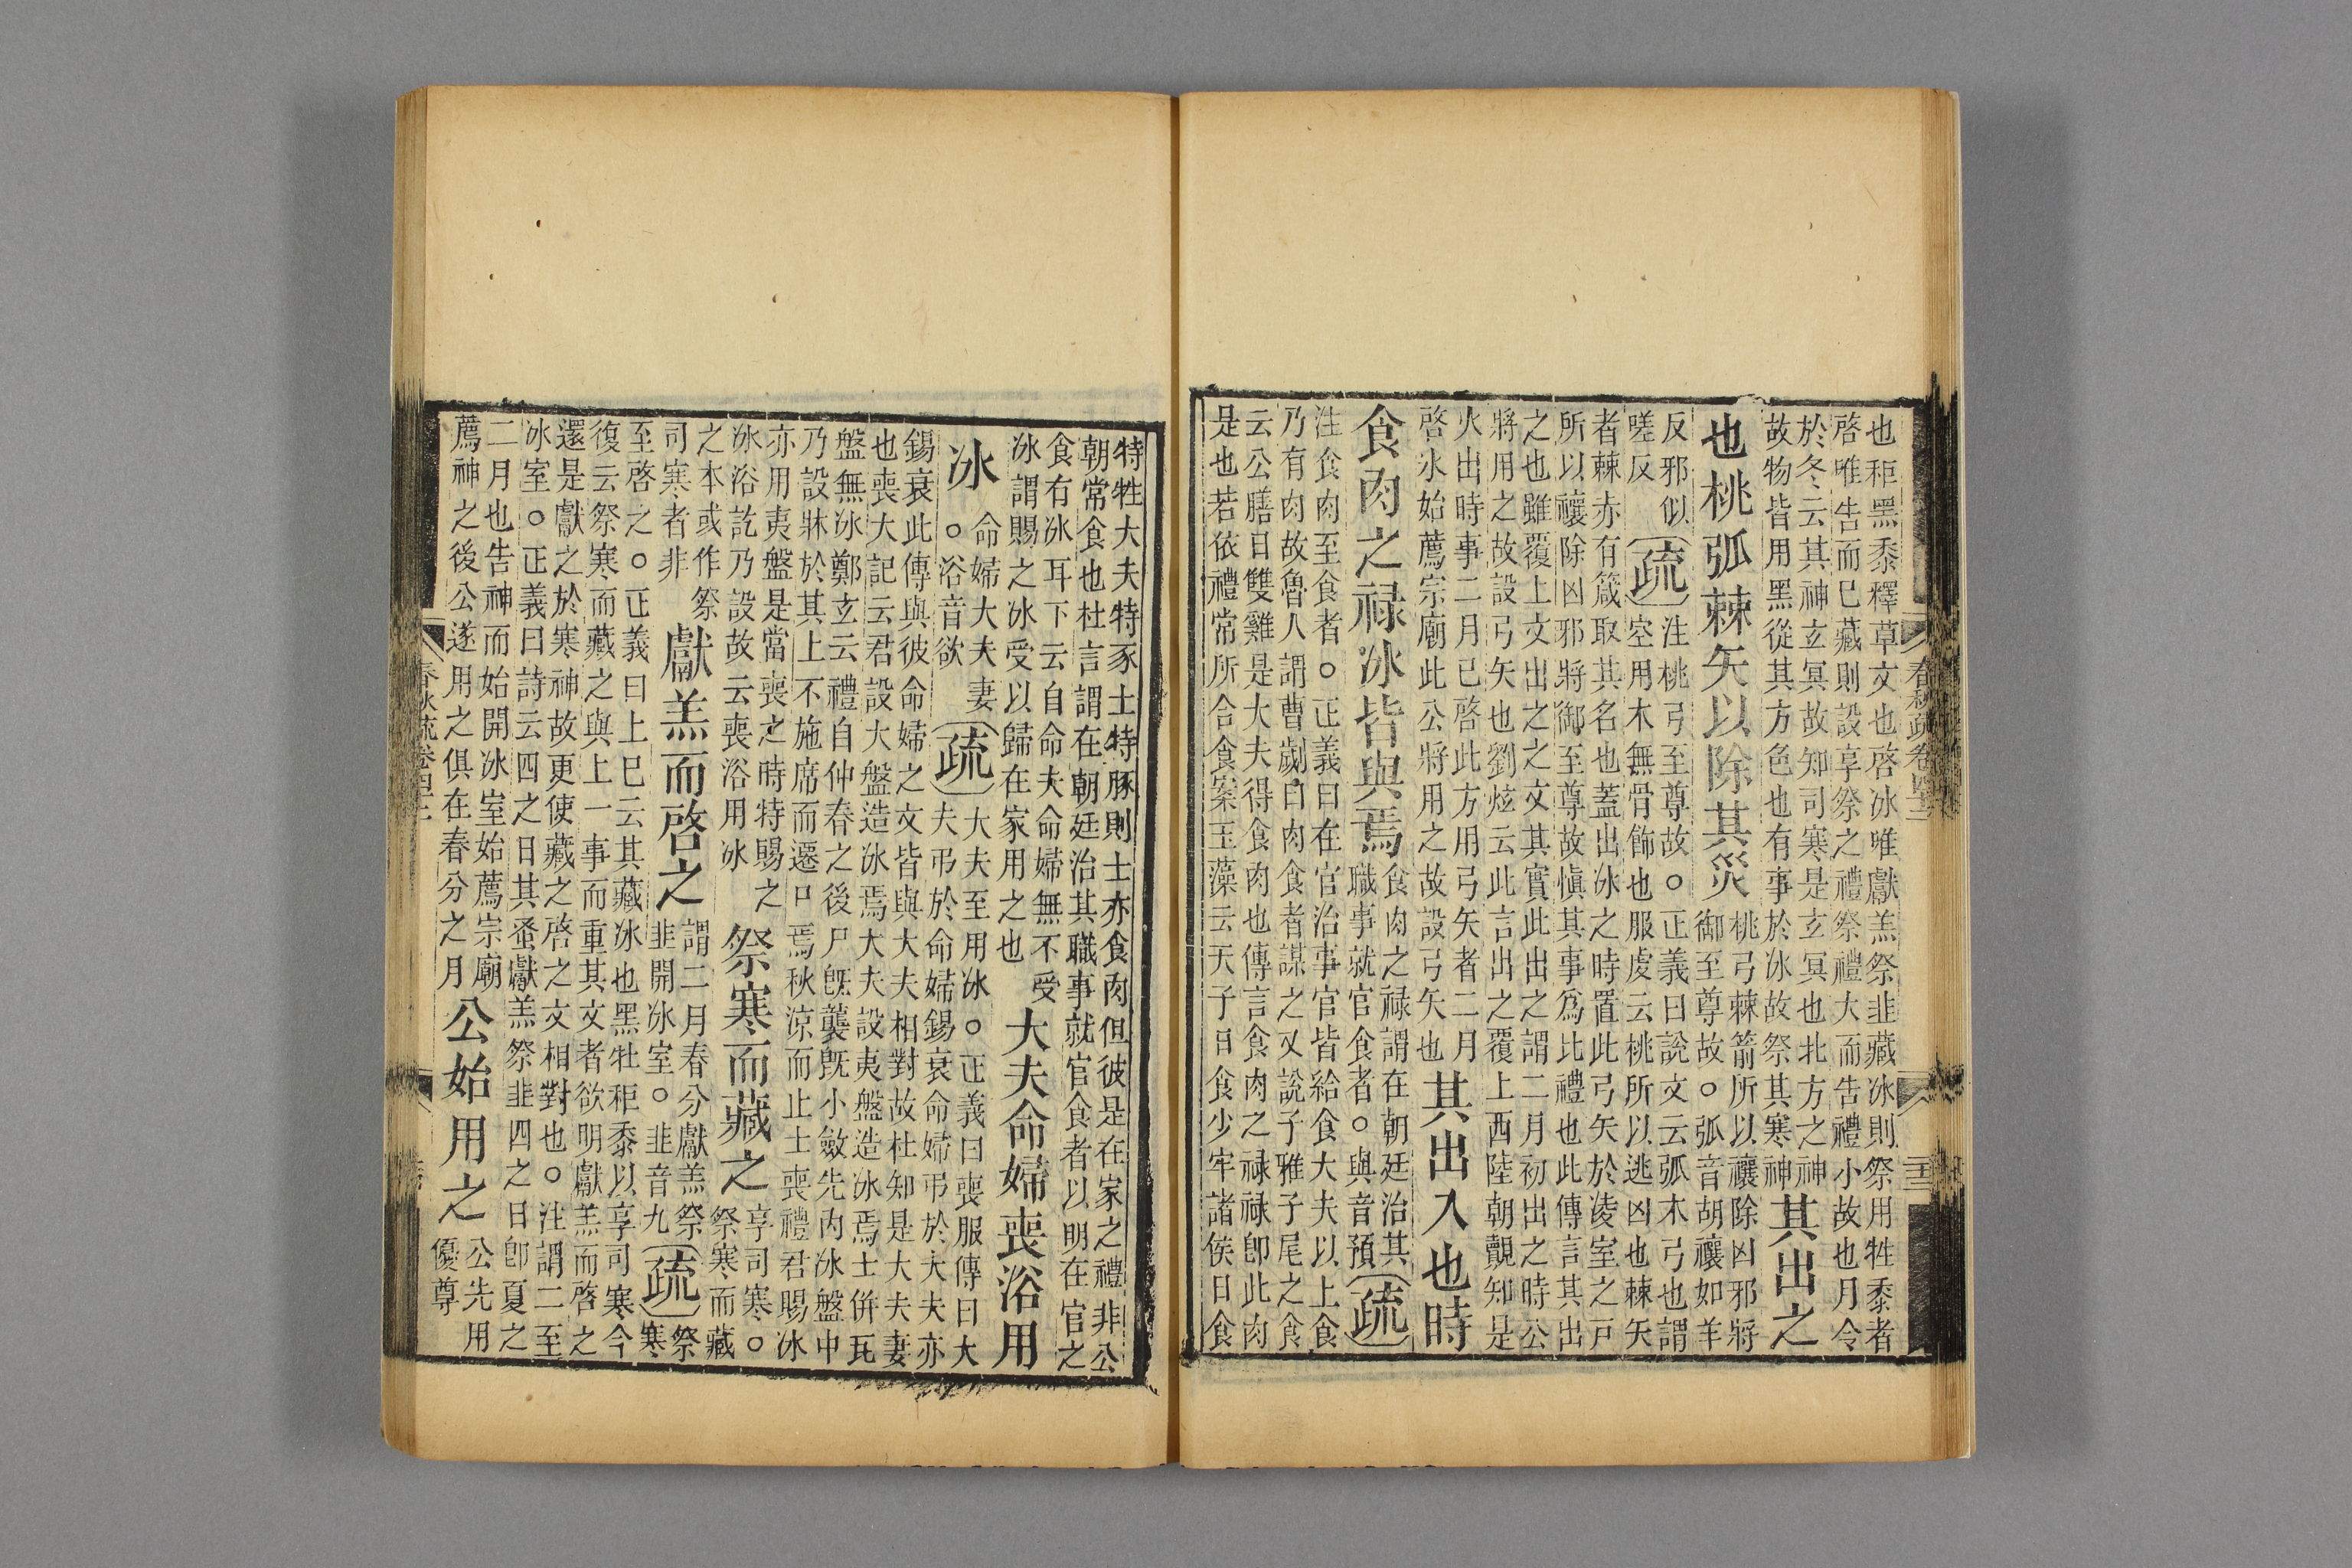 也秬黑黍釋草文也啓冰唯獻羔祭韭藏冰則祭用牲黍者
啓唯告而巳藏則設享祭之禮祭禮大而告禮小故也月令
於冬云其神玄冥故知司寒是玄冥也北方之神
故物皆用黑從其方色也有事於冰故祭其寒神
其出之
也桃弧棘矢以除其災
桃弓棘箭所以禳除凶邪將
御至尊故○弧音胡禳如羊
反邪似
嗟反
疏
注桃弓至尊故○正義曰說文云弧木弓也謂
空用木無骨飾也服虔云桃所以逃凶也棘矢
者棘赤有箴取其名也蓋出冰之時置此弓矢於凌室之戸
所以禳除凶邪將御至尊故愼其事爲比禮也此傳言其出
之也雖覆上文出之之文其實此出之謂二月初出之時公
將用之故設弓矢也劉炫云此言出之覆上西陸朝覿知是
火出時事二月已啓此方用弓矢者二月
啓氷始薦宗廟此公將用之故設弓矢也
其出入也時
食肉之禄冰皆與焉
食肉之禄謂在朝廷治其
職事就官食者○與音預
疏
注食肉至食者○正義曰在官治事官皆給食大夫以上食
乃有肉故魯人謂曹劌曰肉食者謀之又說子雅子尾之食
云公膳日雙雞是大夫得食肉也傳言食肉之禄禄卽此肉
是也若依禮常所合食案玉藻云天子日食少牢諸侯日食
春秋疏卷四十二
特牲大夫特豕士特豚則士亦食肉但彼是在家之禮非公
朝常食也杜言謂在朝廷治其職事就官食者以明在官之
食有冰耳下云自命夫命婦無不受
冰謂賜之冰受以歸在家用之也
大夫命婦喪浴用
冰
命婦大夫妻
○浴音欲
疏
大夫至用冰○正義曰喪服傳曰大
夫弔於命婦錫衰命婦弔於大夫亦
錫衰此傳與彼命婦之文皆與大夫相對故杜知是大夫妻
也喪大記云君設大盤造冰焉大夫設夷盤造冰焉士併瓦
盤無冰鄭玄云禮自仲春之後尸旣襲旣小斂先內冰盤中
乃設牀於其上不施席而遷尸焉秋涼而止士喪禮君賜冰
亦用夷盤是當喪之時特賜之
冰浴訖乃設故云喪浴用冰
祭寒而藏之
享司寒○
祭寒而藏
之本或作祭
司寒者非
獻羔而啓之
謂二月春分獻羔祭
韭開冰室○韭音九
疏
祭
寒
至啓之○正義曰上巳云其藏冰也黑牡秬黍以享司寒今
復云祭寒而藏之與上一事而重其文者欲明獻羔而啓之
還是獻之於寒神故更使藏之啓之文相對也○注謂二至
冰室○正義曰詩云四之日其蚤獻羔祭韭四之日卽夏之
二月也告神而始開冰室始薦宗廟
薦神之後公遂用之俱在春分之月
公始用之
公先用
優尊